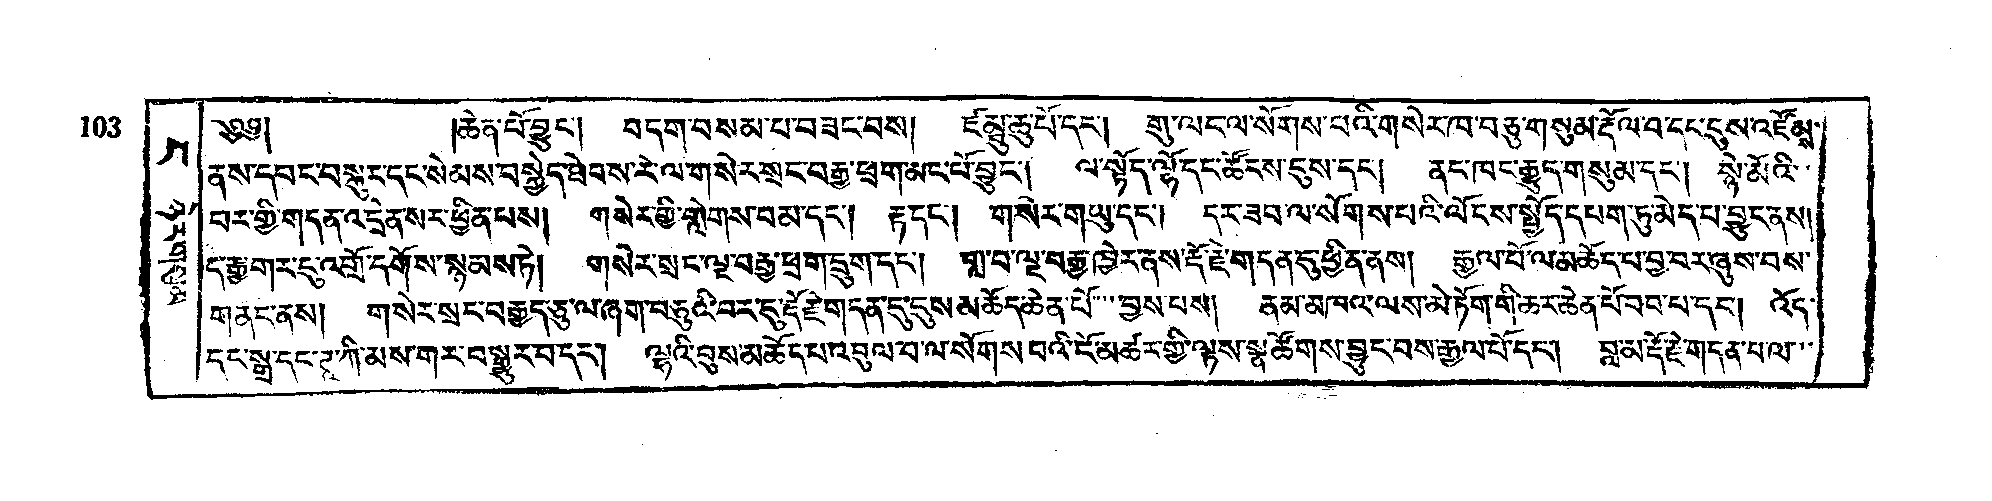 103
༄༅། །ཆེན་པོ་བྱུང་། བདག་བསམ་པ་བཟང་བས། ཛ་མྦུ་ཆུ་པོ་དང་། གྲུ་ལང་ལ་སོགས་པའི་གསེར་ཁ་བཅུ་གསུམ་རྡོལ་བ་དང་དུས་འཛོམ་
ནས་དབང་བསྐུར་དང་སེམས་བསྐྱེད་ཐེབས་རེ་ལ་གསེར་སྲང་བརྒྱ་ཕྲག་མང་པོ་བྱུང་། ལ་སྟོད་ལྷོ་དང་ཚོངས་དུས་དང་། ནང་ཁང་རྒྱུད་གསུམ་དང་། སྙེ་མོའི་
བར་གྱི་གདན་འདྲེན་སར་ཕྱིན་པས། གསེར་གྱི་གླེགས་བམ་དང་། རྟ་དང་། གསེར་གཡུ་དང་། དར་ཟབ་ལ་སོགས་པའི་ལོངས་སྤྱོད་དཔག་ཏུ་མེད་པ་བྱུང་ནས།
ད་རྒྱ་གར་དུ་འགྲོ་དགོས་སྙམས་ཏེ། གསེར་སྲང་ལྔ་བརྒྱ་ཕྲག་དྲུག་དང་། གླ་བ་ལྔ་བརྒྱ་ཁྱེར་ནས་རྡོ་རྗེ་གདན་དུ་ཕྱིན་ནས། རྒྱལ་པོ་ལ་མཆོད་པ་བྱ་བར་ཞུས་བས་
གནང་ནས། གསེར་སྲང་བརྒྱད་ཅུ་ལ་ཞག་བཅུའི་བར་དུ་རྡོ་རྗེ་གདན་དུ་དུས་མཆོད་ཆེན་པོ་བྱས་པས། ནམ་མཁའ་ལས་མེ་ཏོག་གི་ཆར་ཆེན་པོ་བབ་པ་དང་། འོད་
དང་སྒྲ་དང་ཌཱ་ཀི་མས་གར་བསྒྱུར་བ་དང་། ལྷའི་བུས་མཆོད་པ་འབུལ་བ་ལ་སོགས་བའི་ངོ་མཚར་གྱི་ལྟས་སྣ་ཚོགས་བྱུང་བས་རྒྱལ་པོ་དང་། བླ་མ་རྡོ་རྗེ་གདན་པ་ལ་